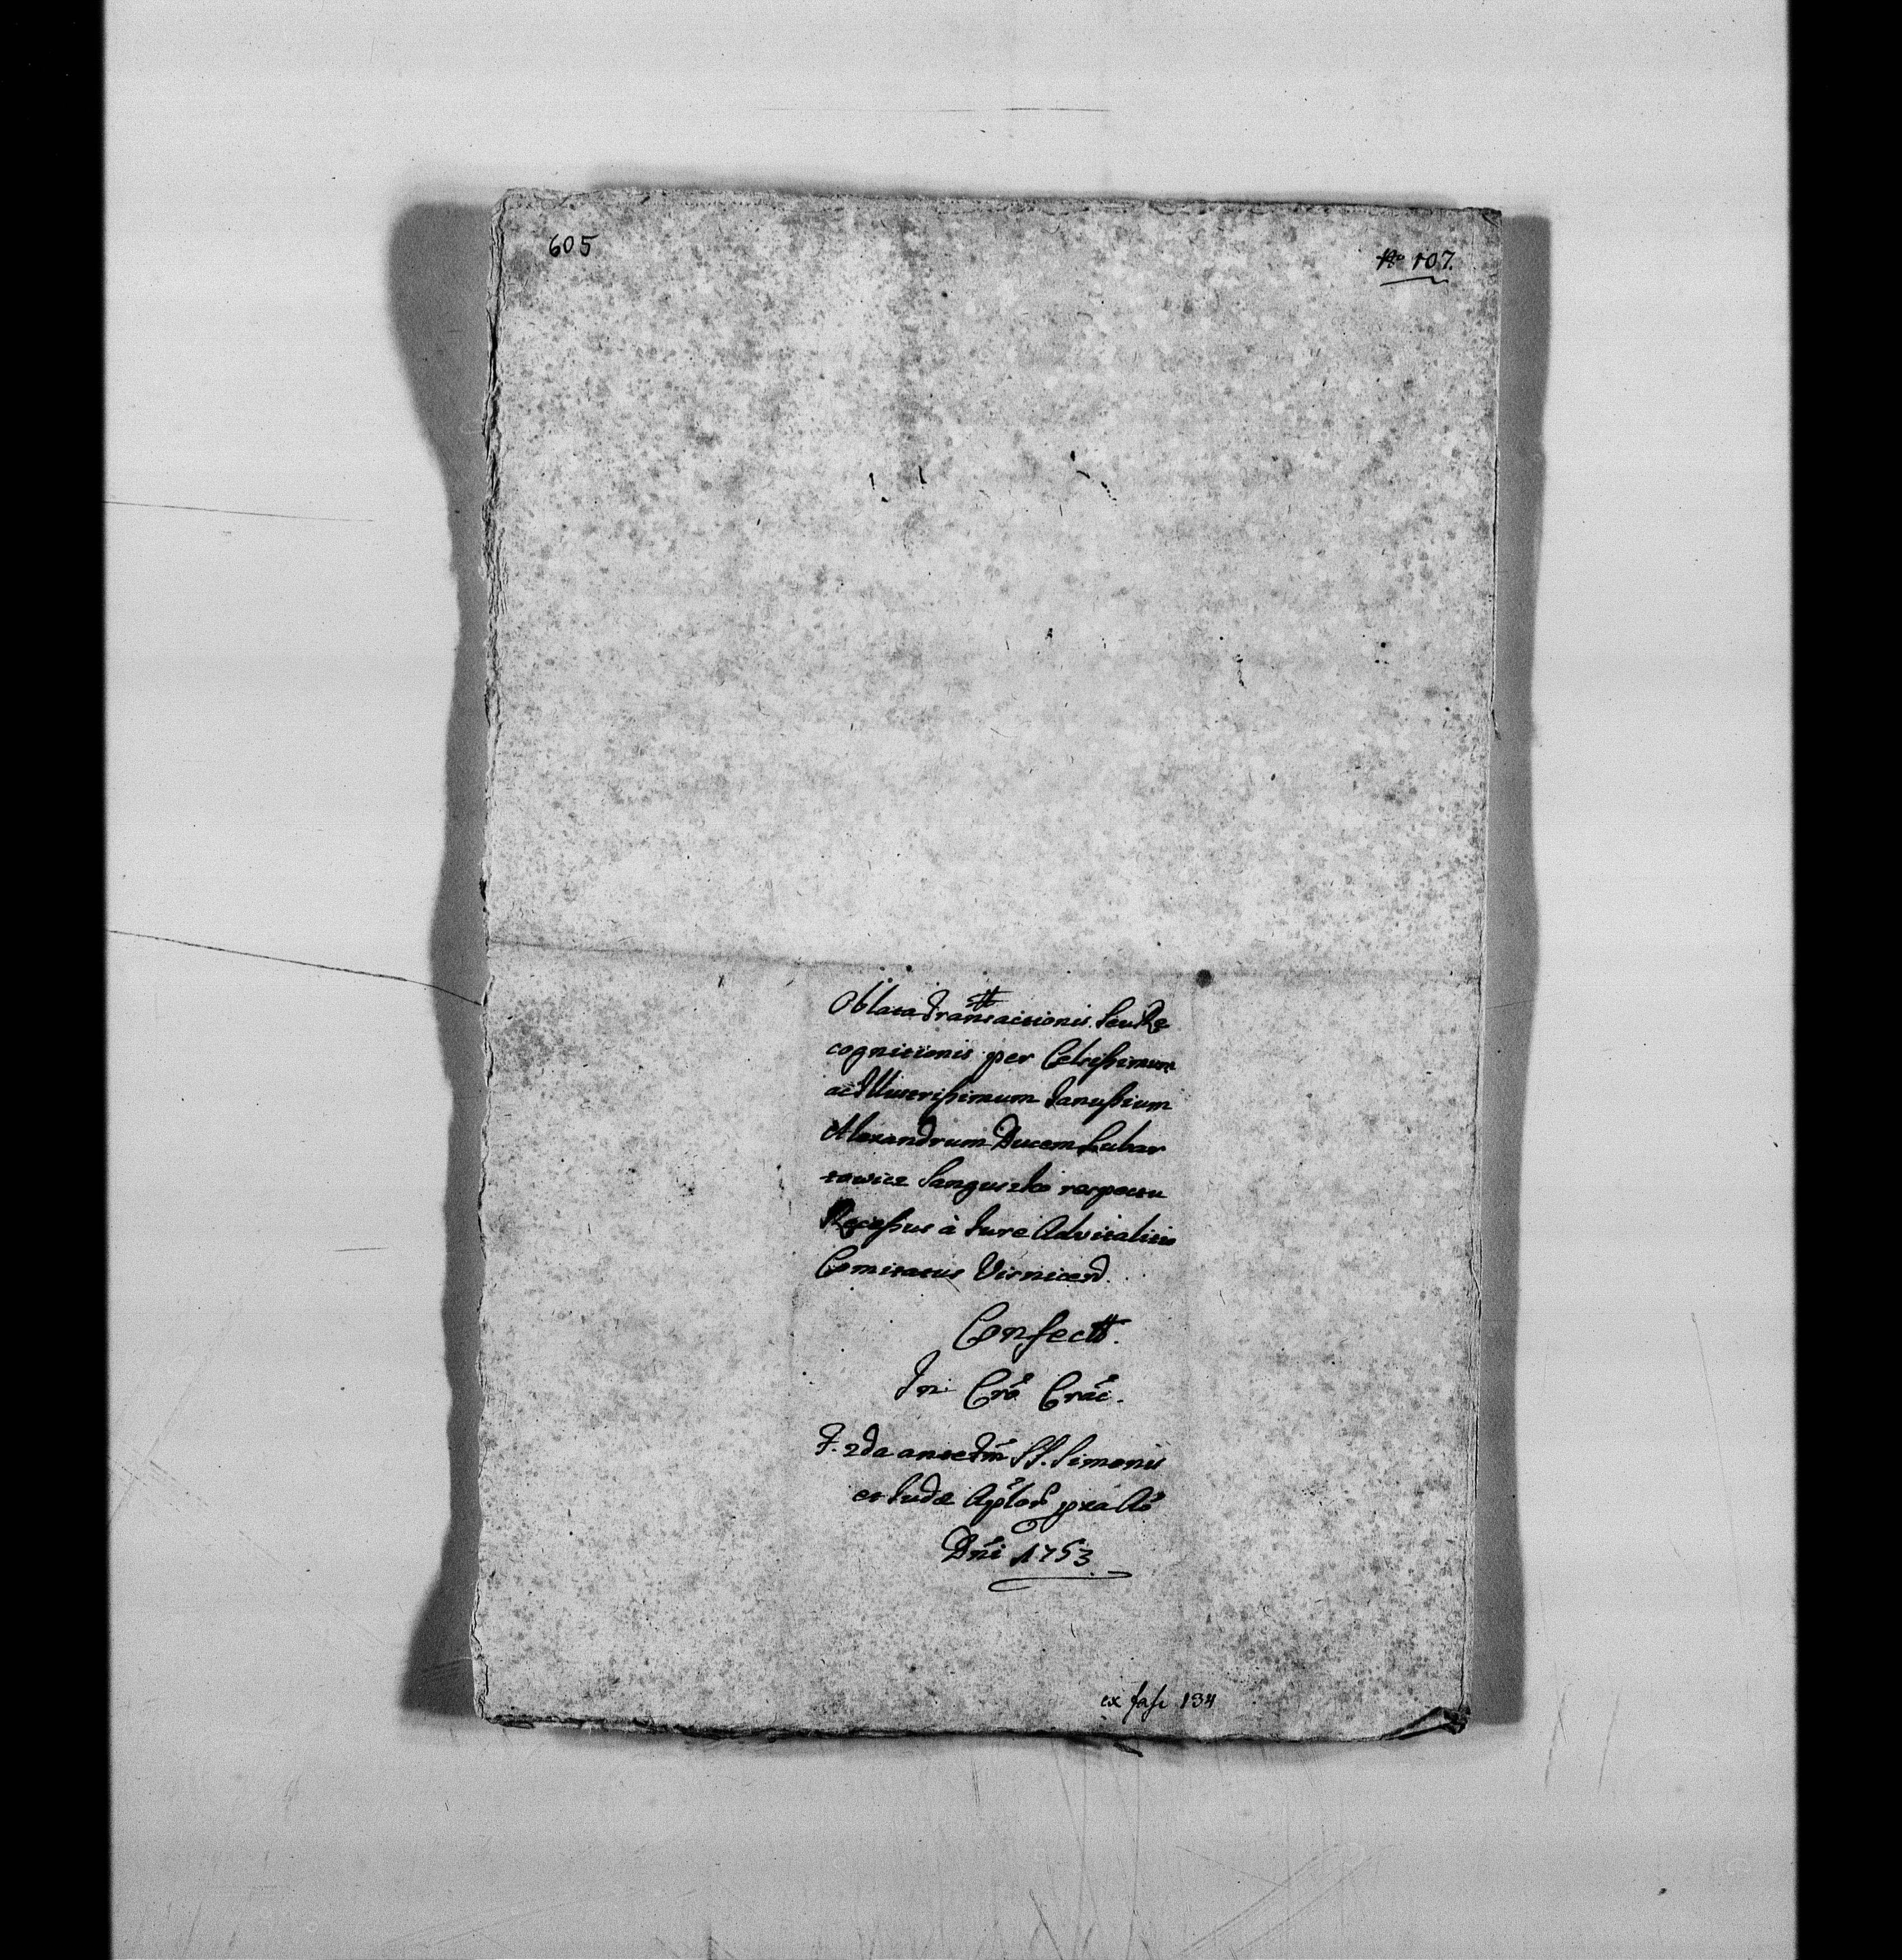 605
No 107.
Oblata Transactionis seu Re
cognitionis per Celsissimum
ac Illustrissimum Janussium
Alexandrum Ducem Lubar
towicz Sanguszko respectu
Recessus à Jure Advitalitio
Comitatus Visnicen̄.
Confectt.
In Crõ Crãc.
F. 2da ante Fm̃ SS. Simonis
et Judæ Aplor̃ pxa Aõ
Dñi 1753
ex fasc 134